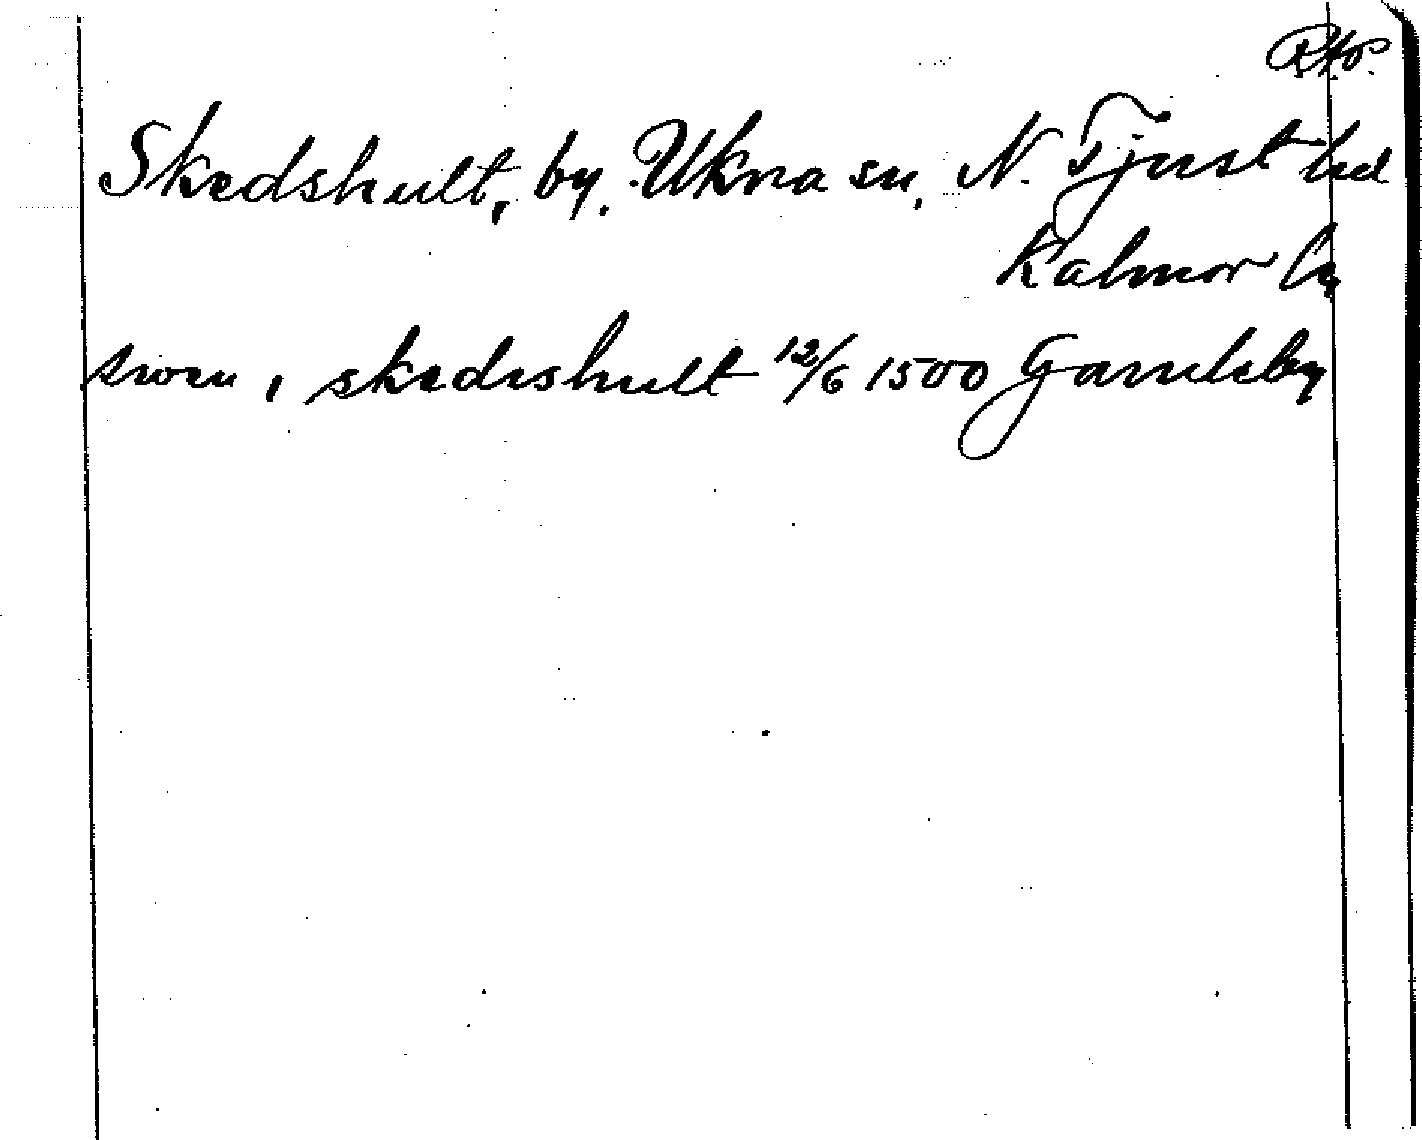 RAp.
Skedshult, by, Ukna sn, N. Tjust hd
Kalmar ln
swen i skedeshult 12/6 1500 Gamleby